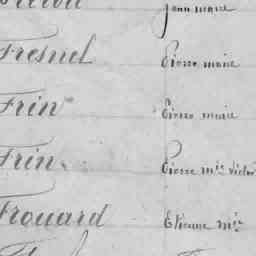 Jean marie
Fresnel Pierre marie
Frin Pierre marie
Frin Pierre m^ie Victor
Frouard Etienne m^ie